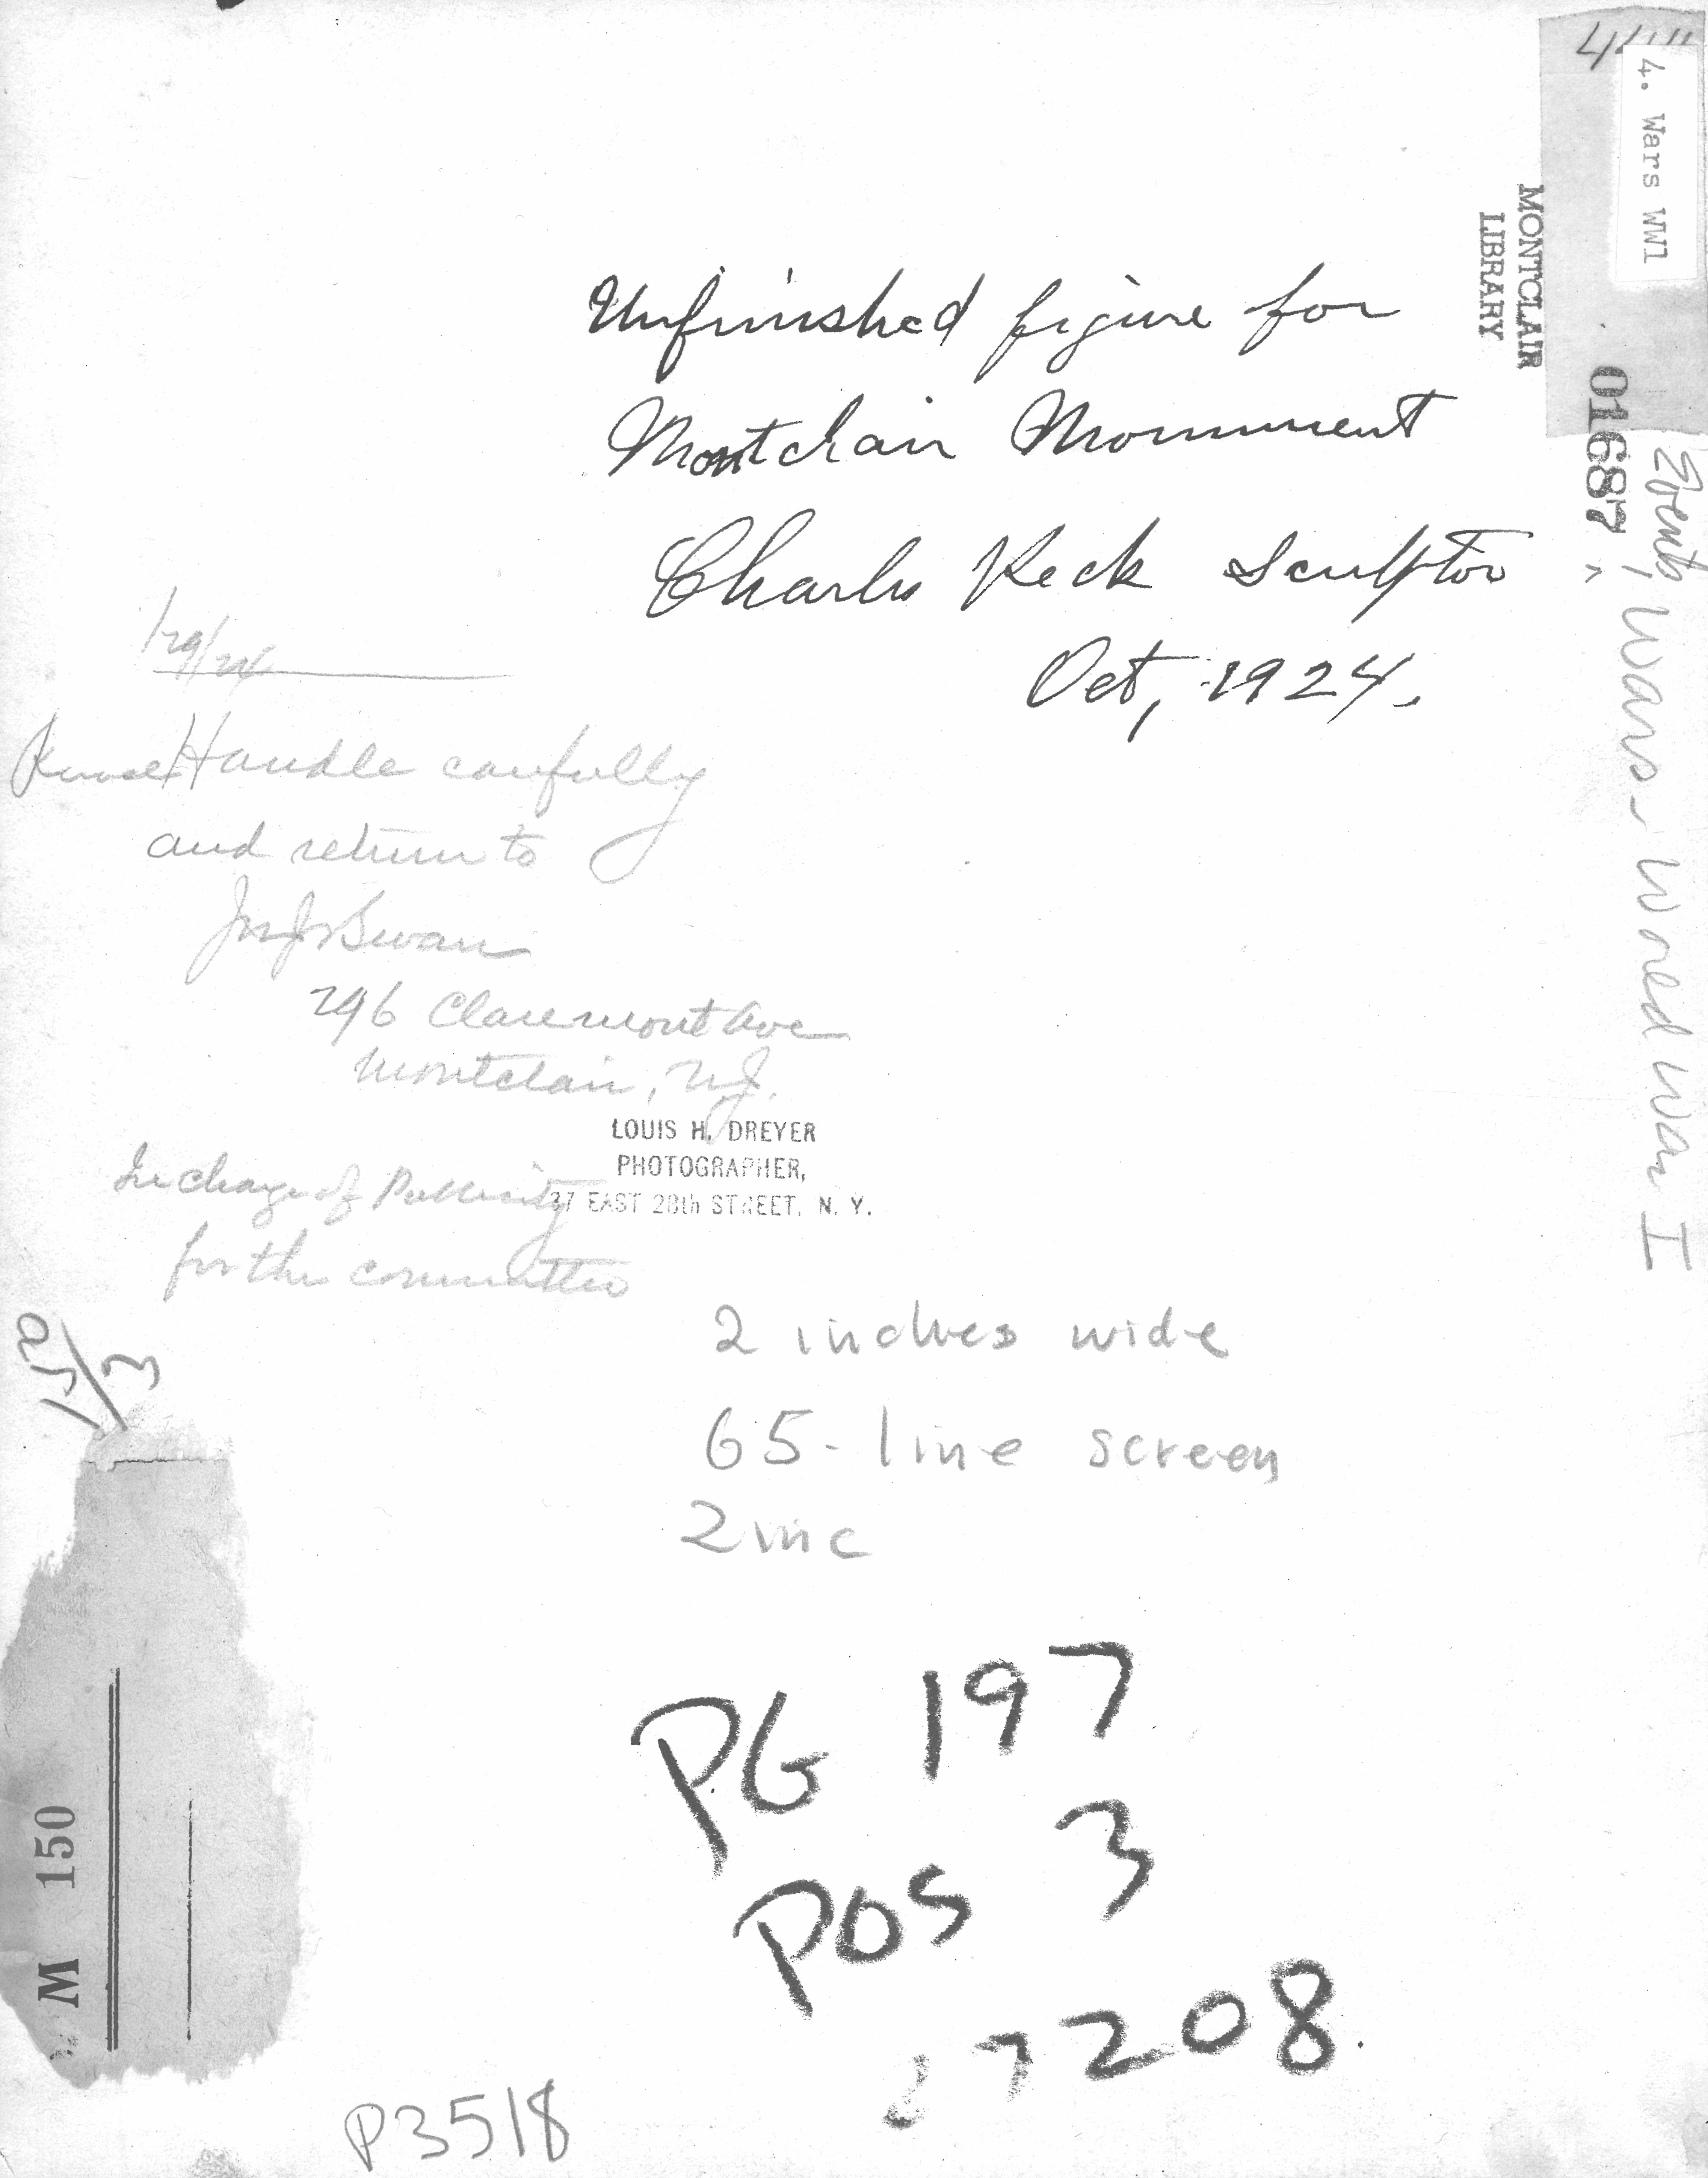 4. Wars WW1
MONTCLAIR
LIBRARY
01687
Events, Wars - World War I
Unfinished figure for
Montclair Monument
Charles Keck Sculptor
Oct, 1924.
Handle carefully
and return to
Swan
296 Claremont Ave
Montclair, N.J.
In charge of Publicity
for the committee
LOUIS H. DREYER
PHOTOGRAPHER,
37 EAST 28th STREET, N. Y.
2 inches wide
65-line screen
Zinc
M 150
PG 197
POS 3
7208
P3518